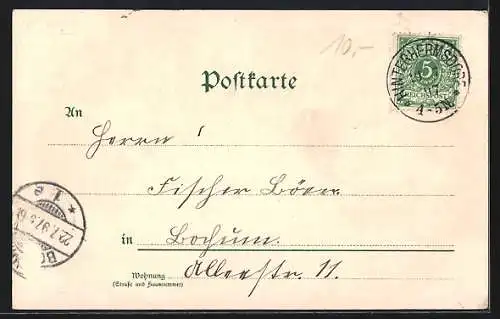 10,-
Postkarte
HINTERHERMSDORF
5
REICHSPOST
97
4-5N.
An
Herrn
Fischer Böver
in Bochum.
Alleestr. 11.
Wohnung
(Straße und Hausnummer)
22.7.97.5-6
1 e